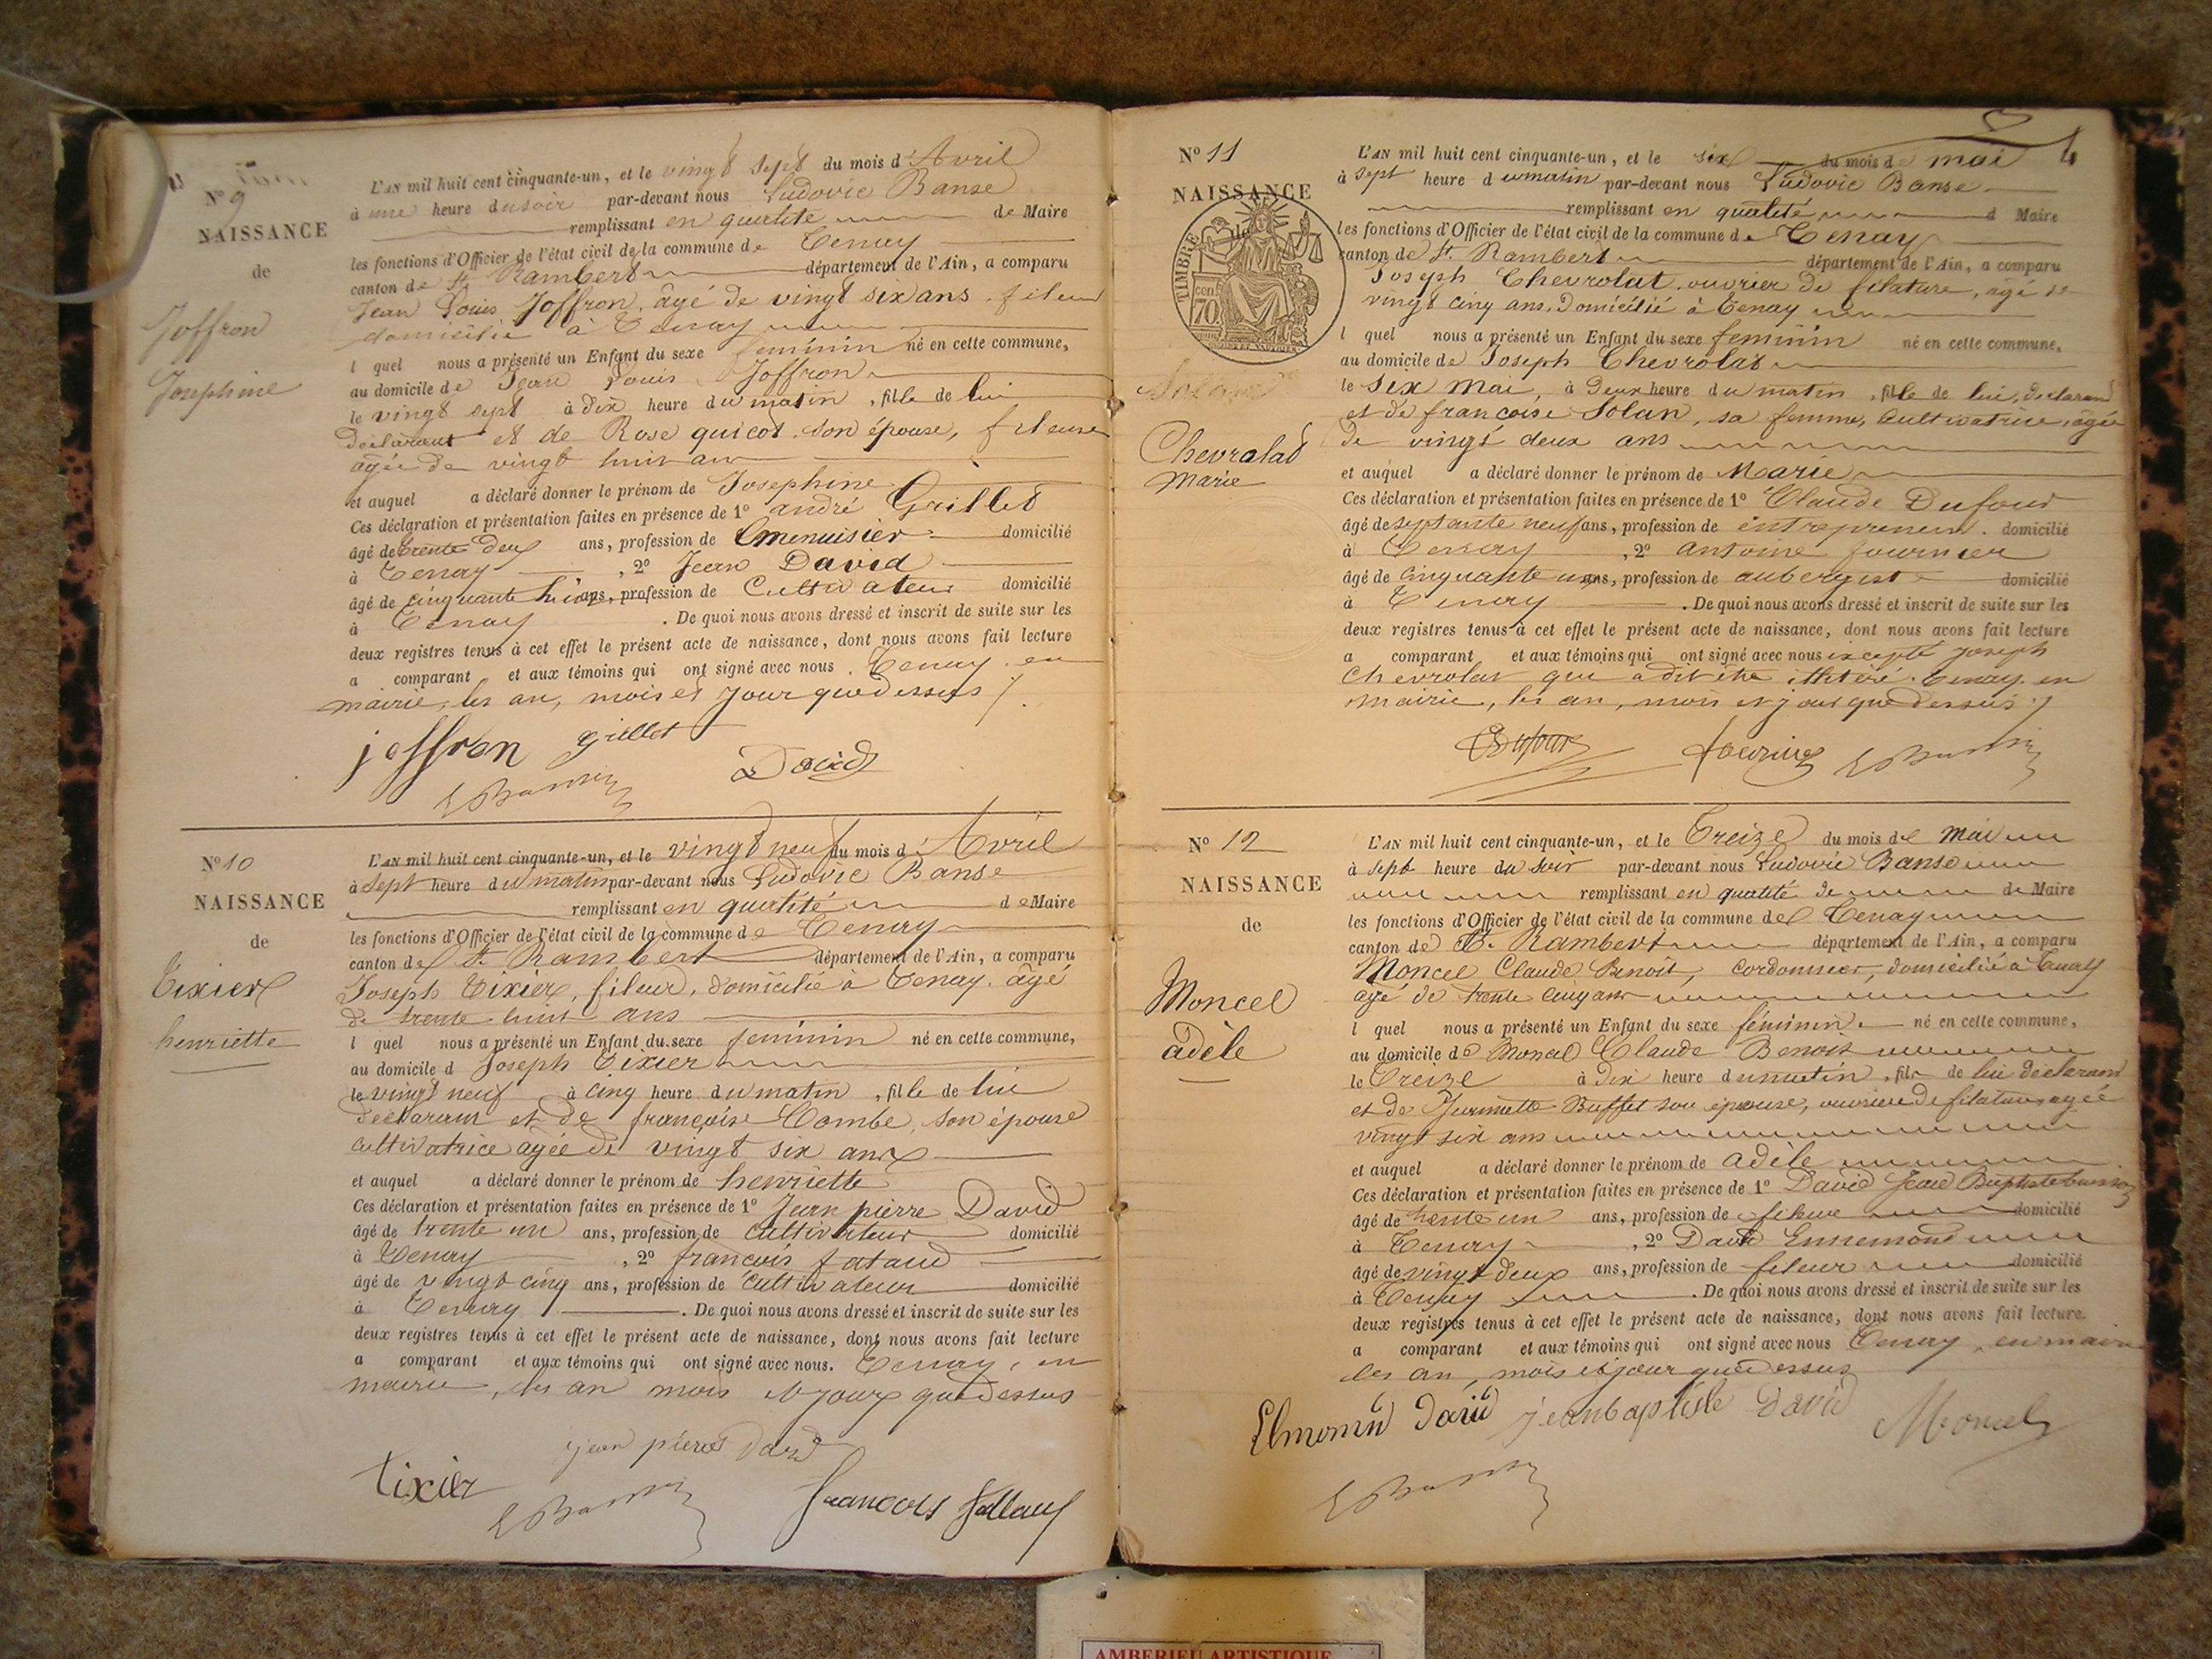 Nº 9
NAISSANCE
de
Joffron
Josephine
L'AN mil huit cent cinquante-un, et le vingt sept du mois d'Avril
à une heure du soir par-devant nous Ludovic Banse
remplissant en qualité de Maire
les fonctions d'Officier de l'état civil de la commune de Tenay
canton de St Rambert département de l'Ain, a comparu
Jean Louis Joffron, âgé de vingt six ans, fileur
domicilié à Tenay
l quel nous a présenté un Enfant du sexe feminin né en cette commune,
au domicile de Jean Louis Joffron
le vingt sept à dix heure du matin, fille de lui
declarant et de Rose guicot son épouse, fileuse
agée de vingt huit ans
et auquel a déclaré donner le prénom de Josephine
Ces déclaration et présentation faites en présence de 1º andré Grillet
âgé de trente deux ans, profession de menuisier domicilié
à Tenay, 2º Jean David
âgé de cinquante huit ans, profession de Cultivateur domicilié
à Tenay. De quoi nous avons dressé et inscrit de suite sur les
deux registres tenus à cet effet le présent acte de naissance, dont nous avons fait lecture
a comparant et aux témoins qui ont signé avec nous. Tenay en
mairie, les an, mois et jour que dessus
joffron grillet
David
Nº 10
NAISSANCE
de
Tixier
henriette
L'AN mil huit cent cinquante-un, et le vingt neuf du mois d'Avril
à sept heure du matin par-devant nous Ludovic Banse
remplissant en qualité de Maire
les fonctions d'Officier de l'état civil de la commune de Tenay
canton de St Rambert département de l'Ain, a comparu
Joseph Tixier, fileur, domicilié à Tenay, âgé
de trente huit ans
l quel nous a présenté un Enfant du sexe feminin né en cette commune,
au domicile d Joseph Tixier
le vingt neuf à cinq heure du matin, fille de lui
declarant et de françoise Combe, son épouse
cultivatrice agée de vingt six ans
et auquel a déclaré donner le prénom de henriette
Ces déclaration et présentation faites en présence de 1º Jean pierre David
âgé de trente un ans, profession de cultivateur domicilié
à Tenay, 2º françois fataud
âgé de vingt cinq ans, profession de Cultivateur domicilié
à Tenay. De quoi nous avons dressé et inscrit de suite sur les
deux registres tenus à cet effet le présent acte de naissance, dont nous avons fait lecture
a comparant et aux témoins qui ont signé avec nous. Tenay, en
mairie, les an mois et jour que dessus
jean pierre david
tixier
francois
4
Nº 11
NAISSANCE
de
TIMBRE
70
Chevrolat
Marie
L'AN mil huit cent cinquante-un, et le six du mois de mai
à sept heure du matin par-devant nous Ludovic Banse
remplissant en qualité d Maire
les fonctions d'Officier de l'état civil de la commune de Tenay
canton de St. Rambert département de l'Ain, a comparu
Joseph Chevrolat, ouvrier de filature, âgé de
vingt cinq ans, domicilié à Tenay
l quel nous a présenté un Enfant du sexe feminin né en cette commune,
au domicile de Joseph Chevrolat
le six mai, à deux heure du matin, fille de lui, declarant
et de francoise Solan, sa femme, cultivatrice, agée
de vingt deux ans
et auquel a déclaré donner le prénom de Marie
Ces déclaration et présentation faites en présence de 1º Claude Dufour
âgé de septante neuf ans, profession de entrepreneur. domicilié
à Tenay, 2º antoine fournier
âgé de Cinquante un ans, profession de aubergist domicilié
à Tenay. De quoi nous avons dressé et inscrit de suite sur les
deux registres tenus à cet effet le présent acte de naissance, dont nous avons fait lecture
a comparant et aux témoins qui ont signé avec nous excepté Joseph
Chevrolat qui a dit être illitéré. Tenay en
mairie, les an, mois et jour que dessus
Dufour
Nº 12
NAISSANCE
de
Moncel
adèle
L'AN mil huit cent cinquante-un, et le Treize du mois de mai
à sept heure du soir par-devant nous Ludovic Banse
remplissant en qualité de de Maire
les fonctions d'Officier de l'état civil de la commune de Tenay
canton de St. Rambert département de l'Ain, a comparu
Moncel Claude Benoît, cordonnier, domicilié à Tenay
agé de trente cinq ans
l quel nous a présenté un Enfant du sexe féminin né en cette commune,
au domicile de Moncel Claude Benoit
le Treize à dix heure du matin, fille de lui declarant
et de Buffet son épouse, ouvriere de filature, agée
vingt six ans
et auquel a déclaré donner le prénom de adèle
Ces déclaration et présentation faites en présence de 1º David Jean Baptiste
âgé de trente un ans, profession de fileur domicilié
à Tenay, 2º David Ennemond
âgé de vingt deux ans, profession de fileur domicilié
à Tenay. De quoi nous avons dressé et inscrit de suite sur les
deux registres tenus à cet effet le présent acte de naissance, dont nous avons fait lecture
a comparant et aux témoins qui ont signé avec nous Tenay, en mairie
les an, mois et jour que dessus
david jeanbaptiste david Moncel
AMBERIEU ARTISTIQUE